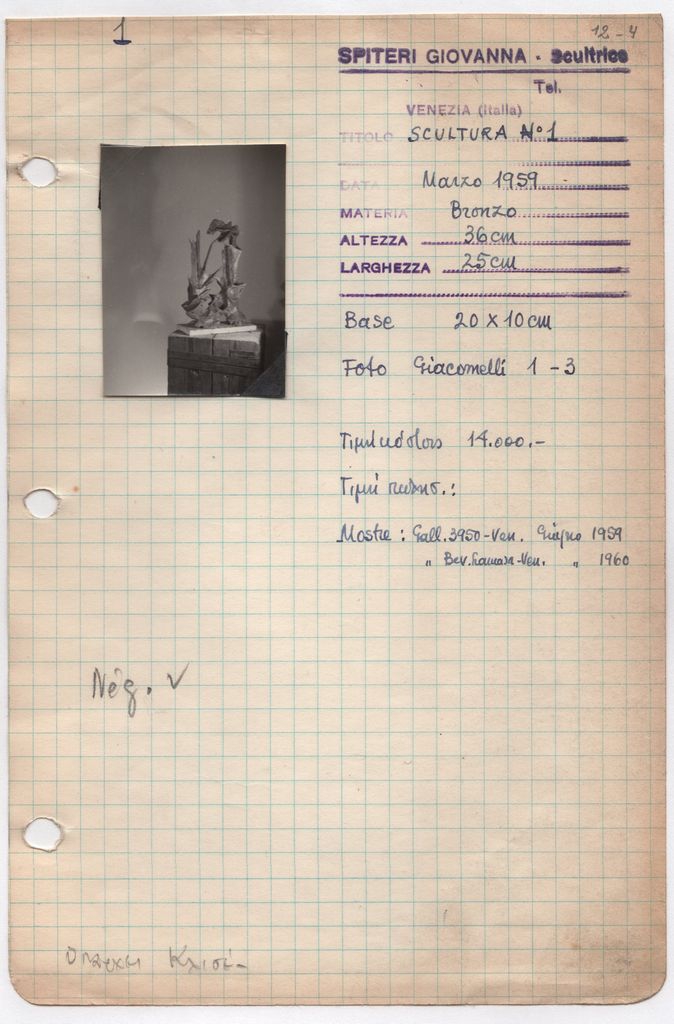 1
12 - 4
SPITERI GIOVANNA - Scultrice
Tel.
VENEZIA (Italia)
TITOLO SCULTURA No 1
DATA Marzo 1959
MATERIA Bronzo
ALTEZZA 36cm
LARGHEZZA 25cm
Base 20 X 10cm
Foto Giacomelli 1 - 3
Τιμή κόστους 14.000.-
Τιμή
Mostre : Gall. 3950-Ven. Giugno 1959
" Bev. -Ven. " 1960
Nég. V
Υπάρχει Κλισέ-